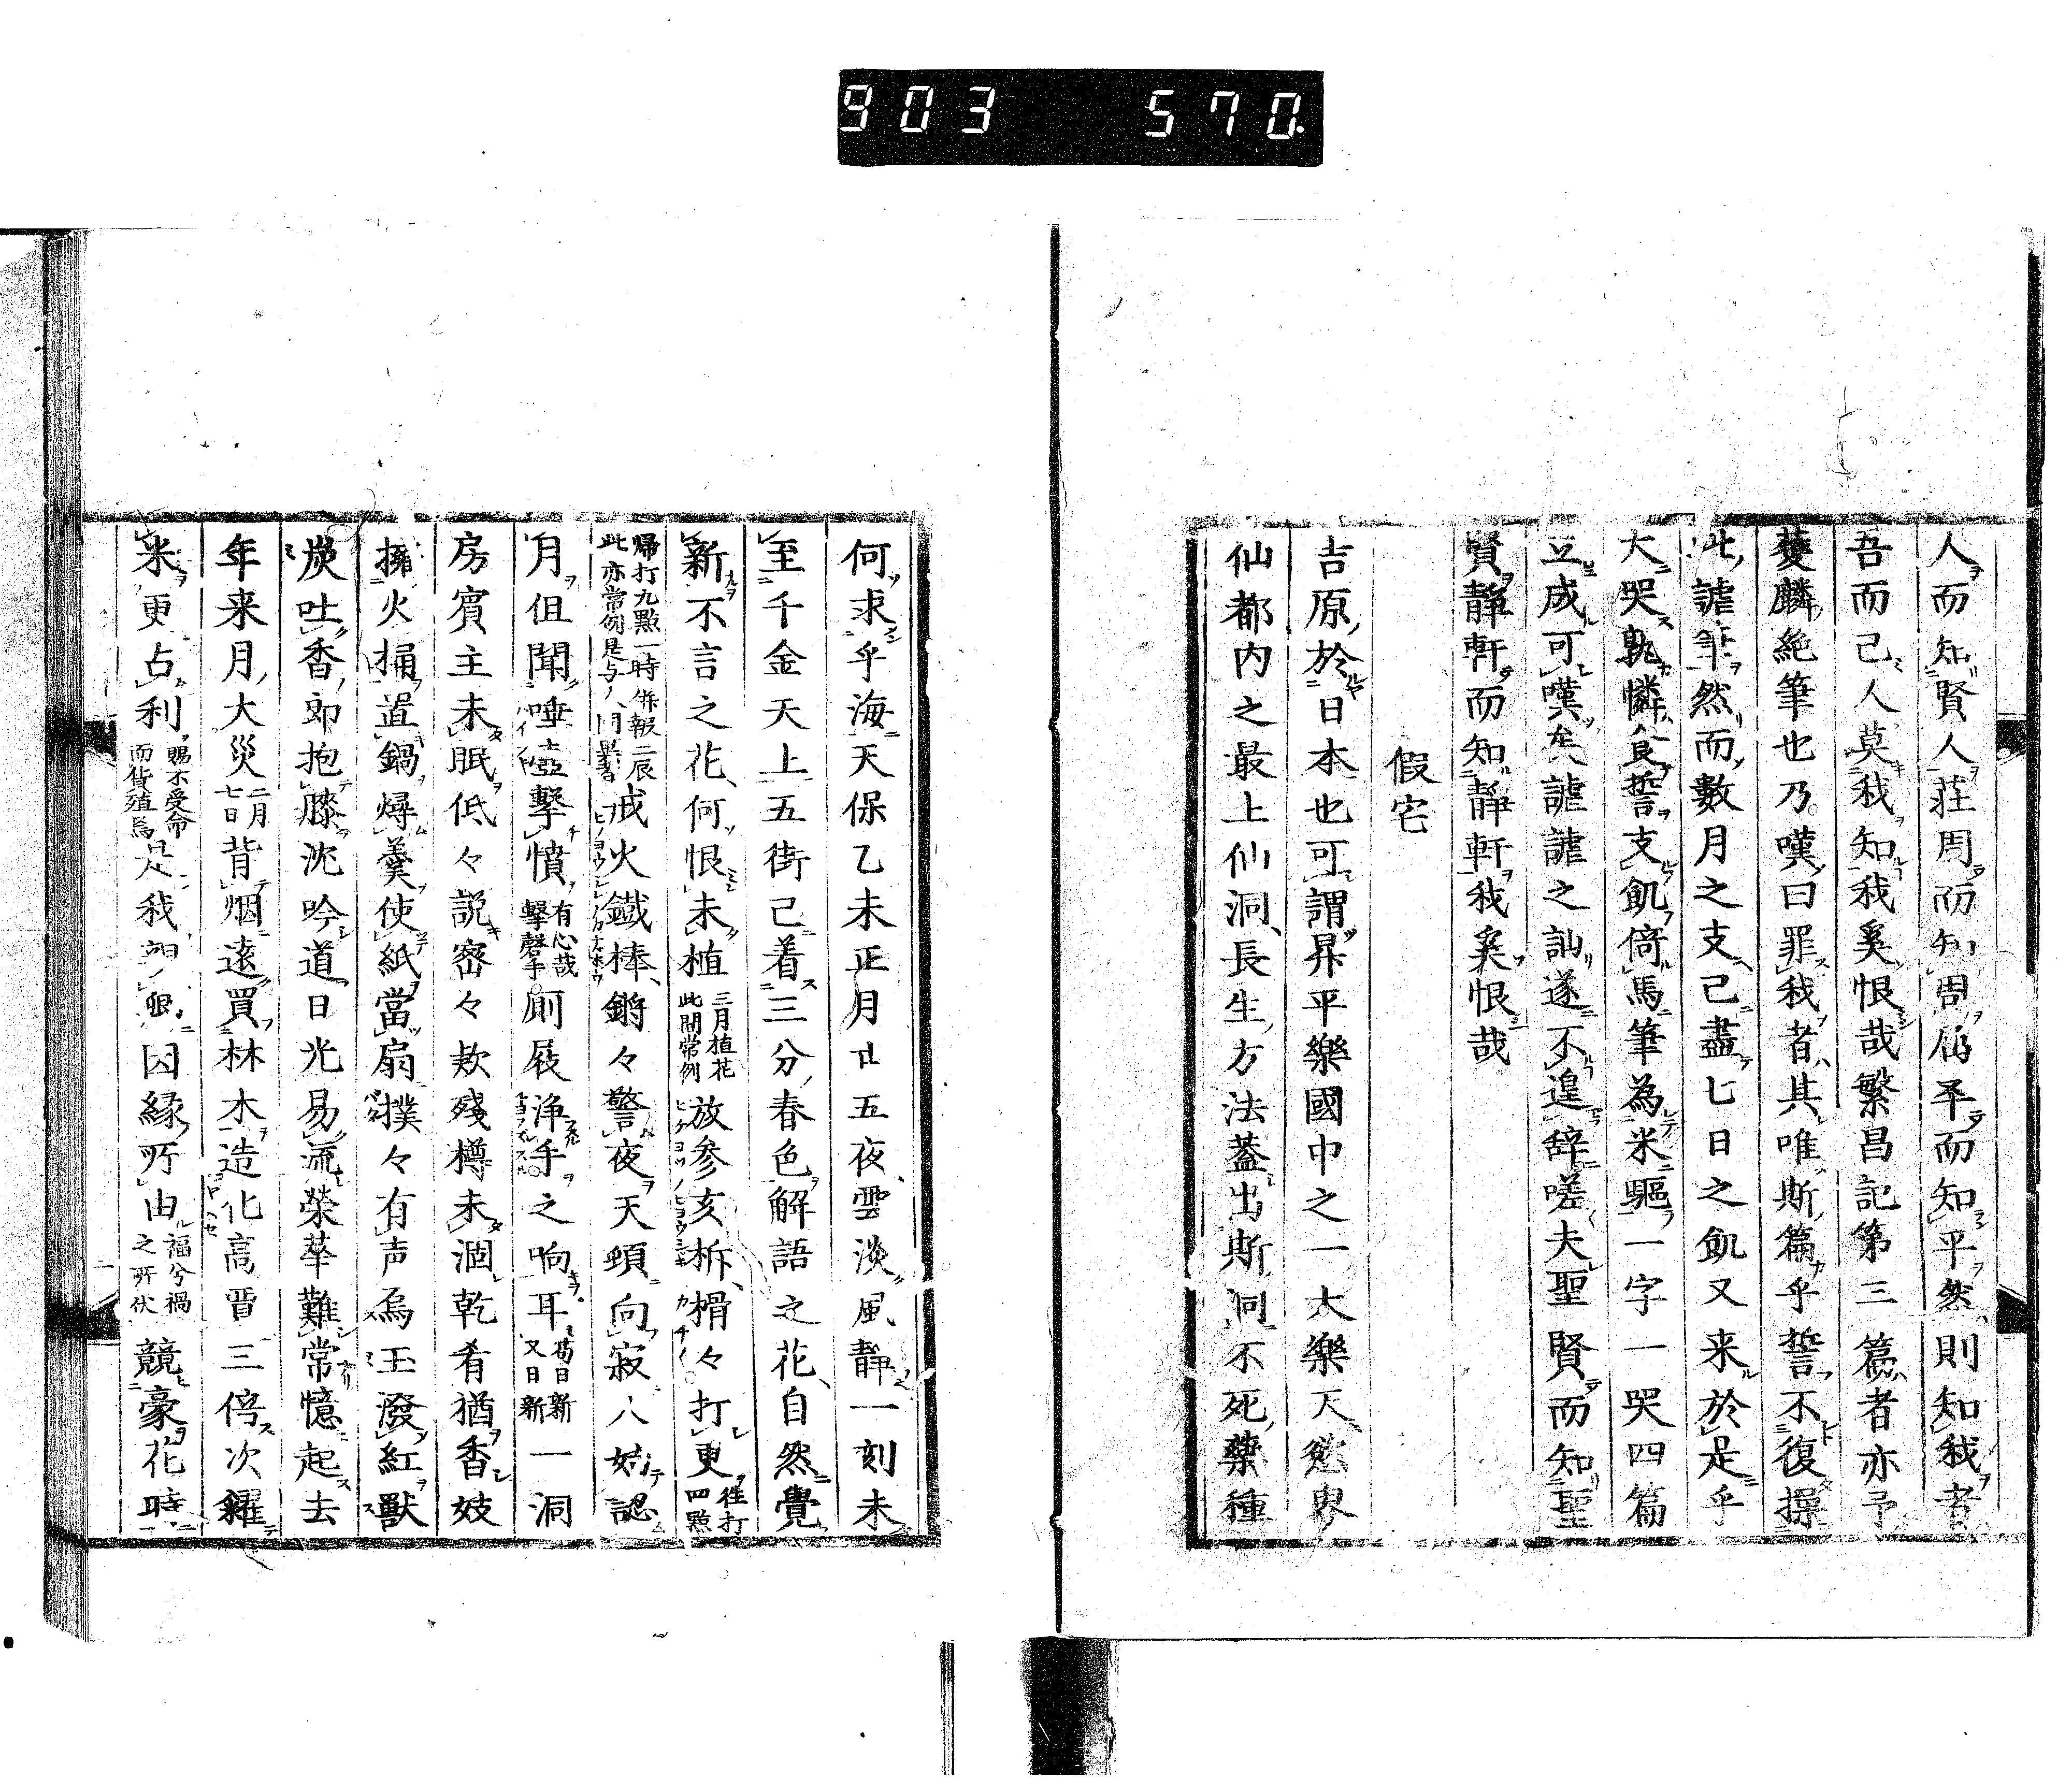 903 570
人而知賢人荘周而知周屈平而知平然則知我者
吾而已人莫我知我奚恨哉繁昌記第三篇者亦予
獲麟絶筆也乃嘆曰罪我者其唯斯篇乎誓不復操
此謔筆然而數月之支已盡七日之飢又来於是乎
大哭孰憐食誓支飢倚馬筆為米驅一字一哭四篇
立成可嘆矣謔謔之訕遂不遑辞嗟夫聖賢而知聖
賢靜軒而知靜軒我奚恨哉
假宅
吉原於日本也可謂昇平樂國中之一大樂天慾界
仙都内之最上仙洞長生方法蓋出斯洞不死藥種
何求乎海天保乙未正月廿五夜雲淡風靜一刻未
至千金天上五街已着三分春色解語之花自然覺
新不言之花何恨未植三月植花此間常例放参亥柝榾々打更往打四點
帰打九點一時併報二辰此亦常例是与人間戒火鐵棒鏘々警夜天頭向寂八 認
月但聞唾壺撃憤有心哉撃磬乎厠屐浄手之响耳苟日新又日新一洞
房賓主未眠低々説密々欵殘樽未涸乾肴猶香妓
擁火桶置鍋燖羹使紙當扇撲々有声爲玉潑紅獸
炭吐香郎抱膝沈吟道日光易流榮華難常憶起去
年来月大災二月七日背烟遠買林木造化高晋三倍次糴
米更占利賜不受命而貨殖焉是我 眼因縁所由福兮禍之所伏競豪花時